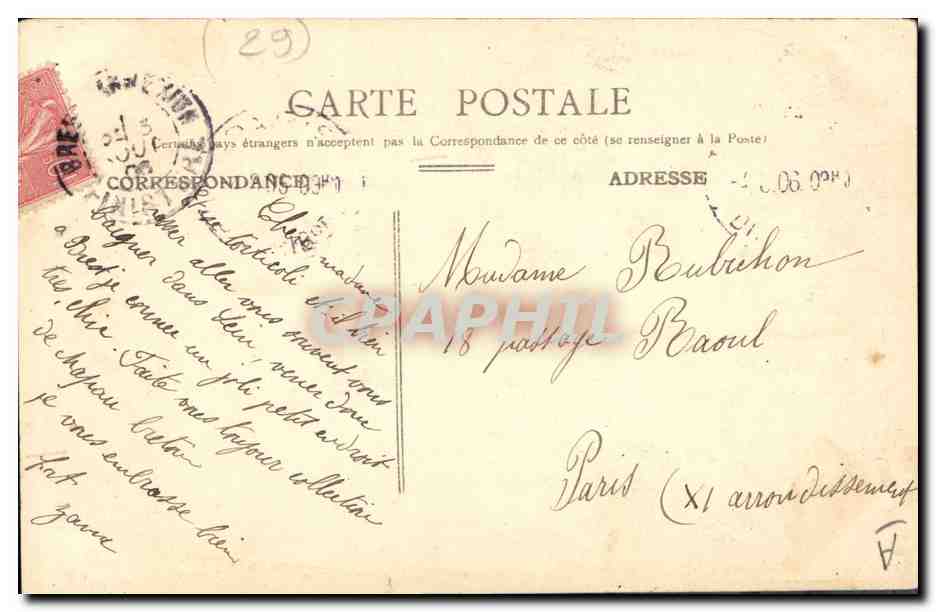 (29)
CARTE POSTALE
Certains pays étrangers n'acceptent pas la Correspondance de ce côté (se renseigner à la Poste)
CORRESPONDANCE
ADRESSE
Chère madame
votre torticoli est bien
passer aller vous souvent vous
baigner dans Sein, venez donc
a Brest je connee un joli petit endroit
tres chic. Faite vous toujour collection
de chapau breton
je vous embrasse bien
fort
Madame Rubichon
18 passage Raoul
Paris (XI arrondissement
A
CPAPHIL